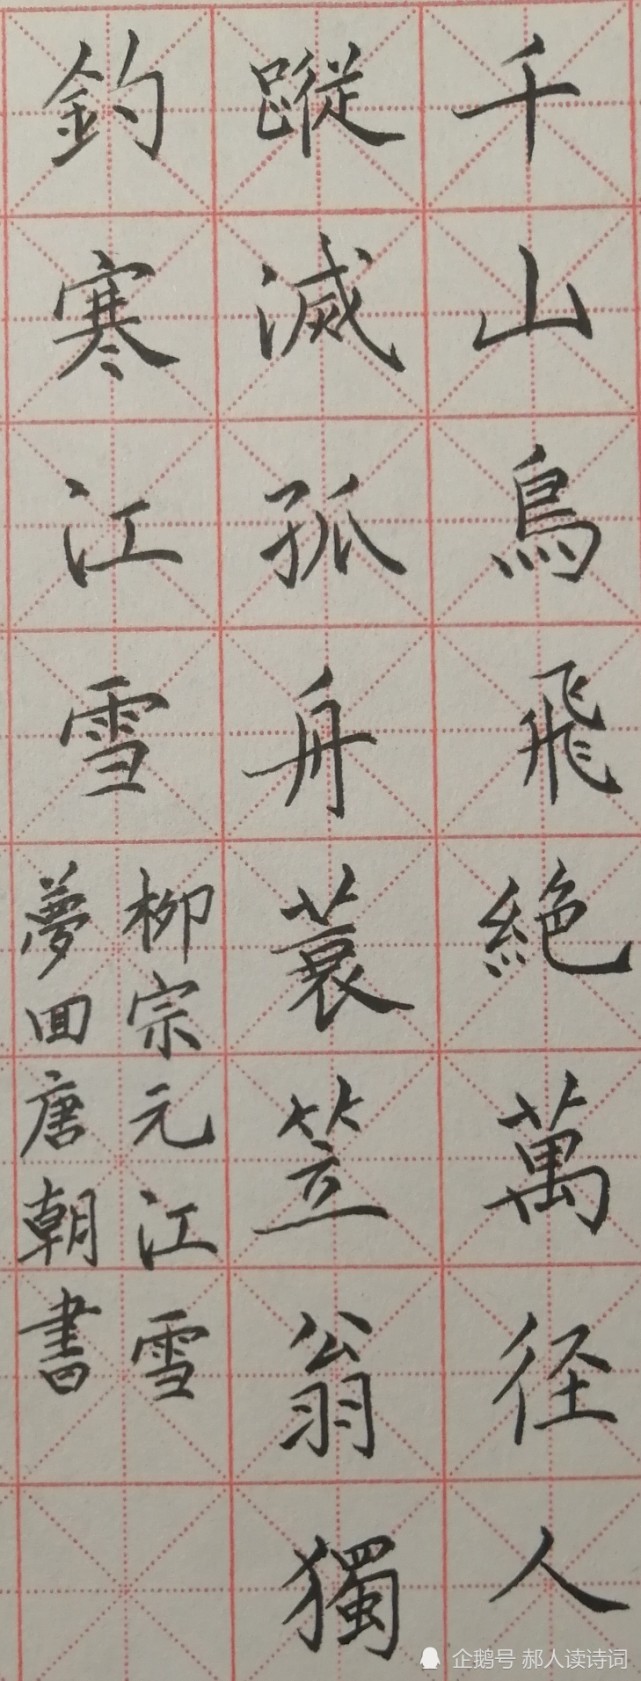 千山鳥飛絶萬径人
蹤滅孤舟蓑笠翁獨
釣寒江雪
柳宗元江雪
夢回唐朝書
企鹅号 郝人读诗词